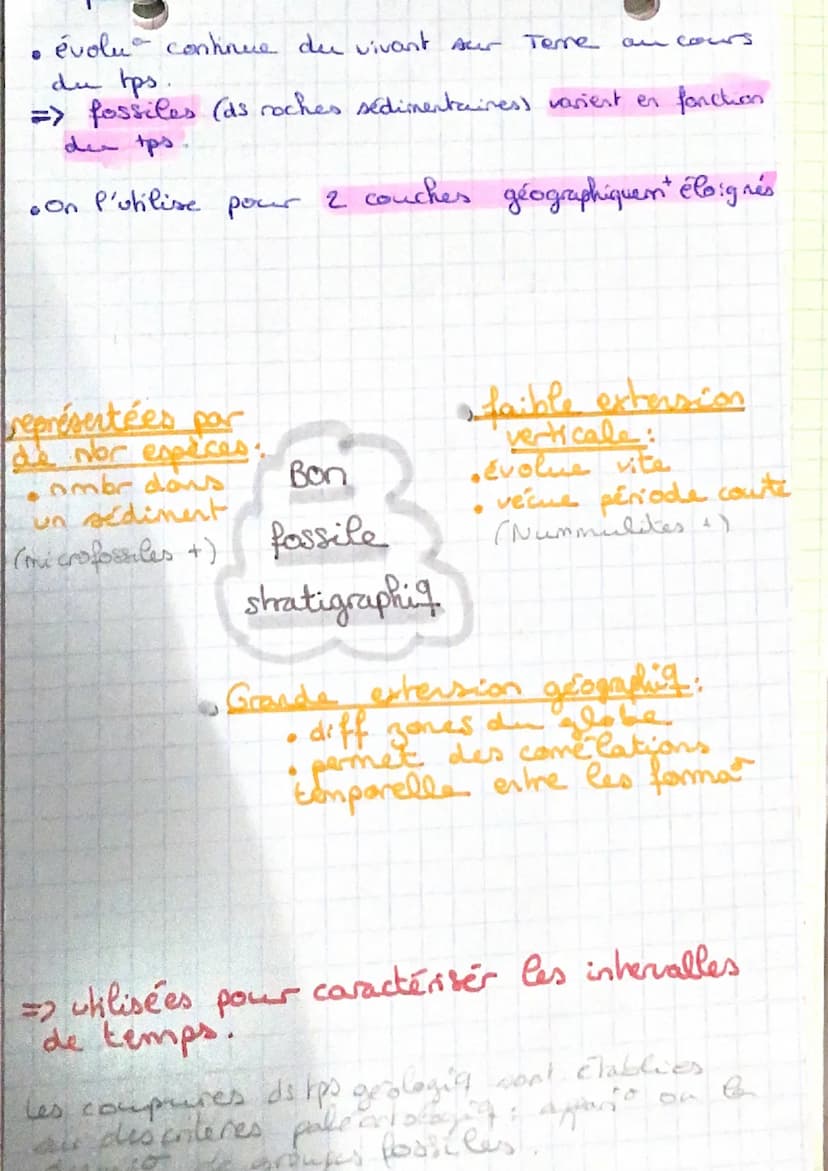 • évoluº continue du vivant sur Terre au cours
du tps.
=> fossiles (ds roches sédimentaires) varient en fonction
du tps.
• On l'utilise pour 2 couches géographiquem⁺ éloignés
représentées par
de nbr espèces :
• nmbr dans
un sédiment
(microfossiles +)
Bon
fossile
stratigraphiq
• faible extension
verticale :
• évolue vite
• vécue période courte
(Nummulites +)
• Grande extension géographiq :
• diff zones du globe
• permet des corrélations
temporelle entre les formaº
=> utilisées pour caractériser les intervalles
de temps.
Les coupures ds tps géologiq sont établies
des critères paléontologiq : appariº ou la
de groupes fossiles.